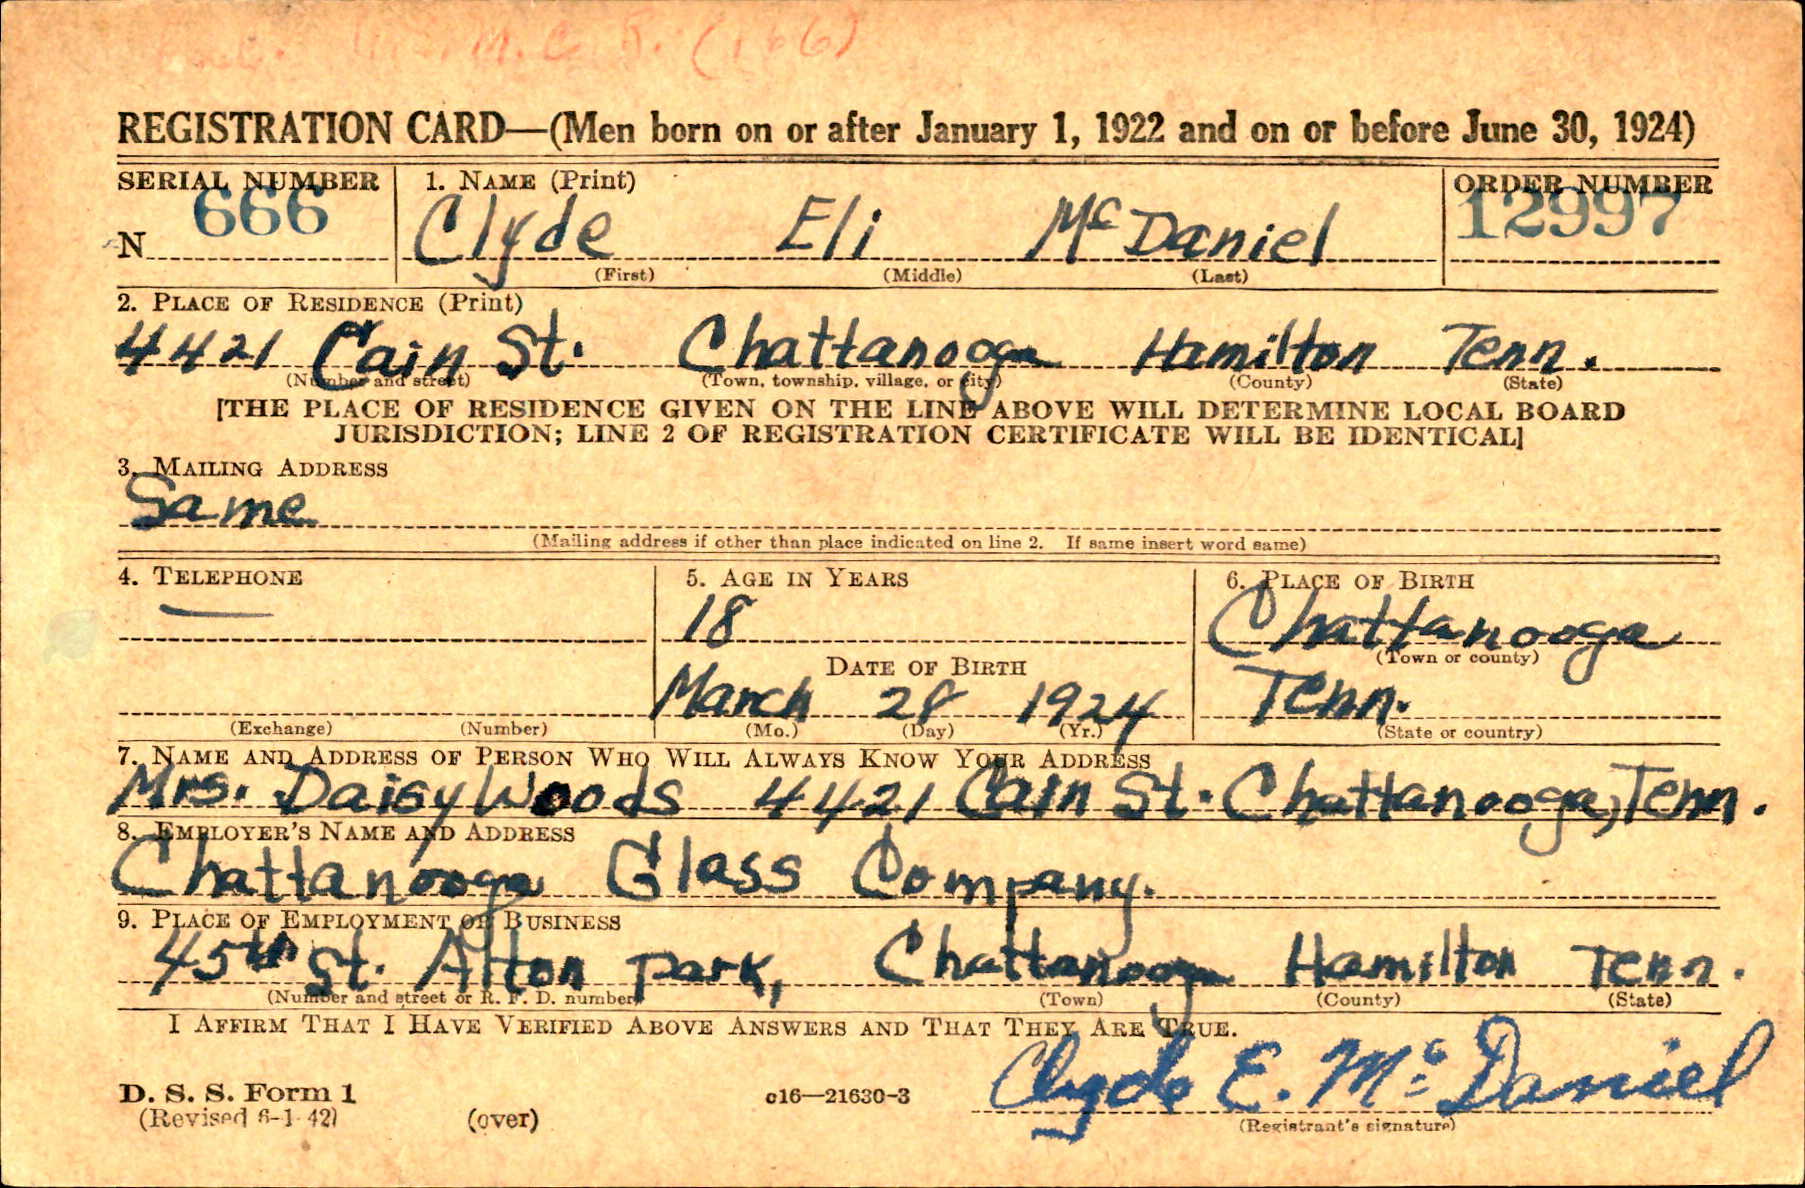 M. C. R. (166)
REGISTRATION CARD—(Men born on or after January 1, 1922 and on or before June 30, 1924)
SERIAL NUMBER 1. NAME (Print) ORDER NUMBER
N 666 Clyde Eli McDaniel 12997
(First) (Middle) (Last)
2. PLACE OF RESIDENCE (Print)
4421 Cain St. Chattanooga Hamilton Tenn.
(Number and street) (Town, township, village, or city) (County) (State)
[THE PLACE OF RESIDENCE GIVEN ON THE LINE ABOVE WILL DETERMINE LOCAL BOARD
JURISDICTION; LINE 2 OF REGISTRATION CERTIFICATE WILL BE IDENTICAL]
3. MAILING ADDRESS
Same
(Mailing address if other than place indicated on line 2. If same insert word same)
4. TELEPHONE 5. AGE IN YEARS 6. PLACE OF BIRTH
— 18 Chattanooga
(Town or county)
DATE OF BIRTH
March 28 1924 Tenn.
(Exchange) (Number) (Mo.) (Day) (Yr.) (State or country)
7. NAME AND ADDRESS OF PERSON WHO WILL ALWAYS KNOW YOUR ADDRESS
Mrs. Daisy Woods 4421 Cain St. Chattanooga, Tenn.
8. EMPLOYER'S NAME AND ADDRESS
Chattanooga Glass Company.
9. PLACE OF EMPLOYMENT OR BUSINESS
45th St. Alton Park, Chattanooga Hamilton Tenn.
(Number and street or R. F. D. number) (Town) (County) (State)
I AFFIRM THAT I HAVE VERIFIED ABOVE ANSWERS AND THAT THEY ARE TRUE.
Clyde E. McDaniel
D. S. S. Form 1 c16—21630-3
(Revised 6-1-42) (over) (Registrant's signature)